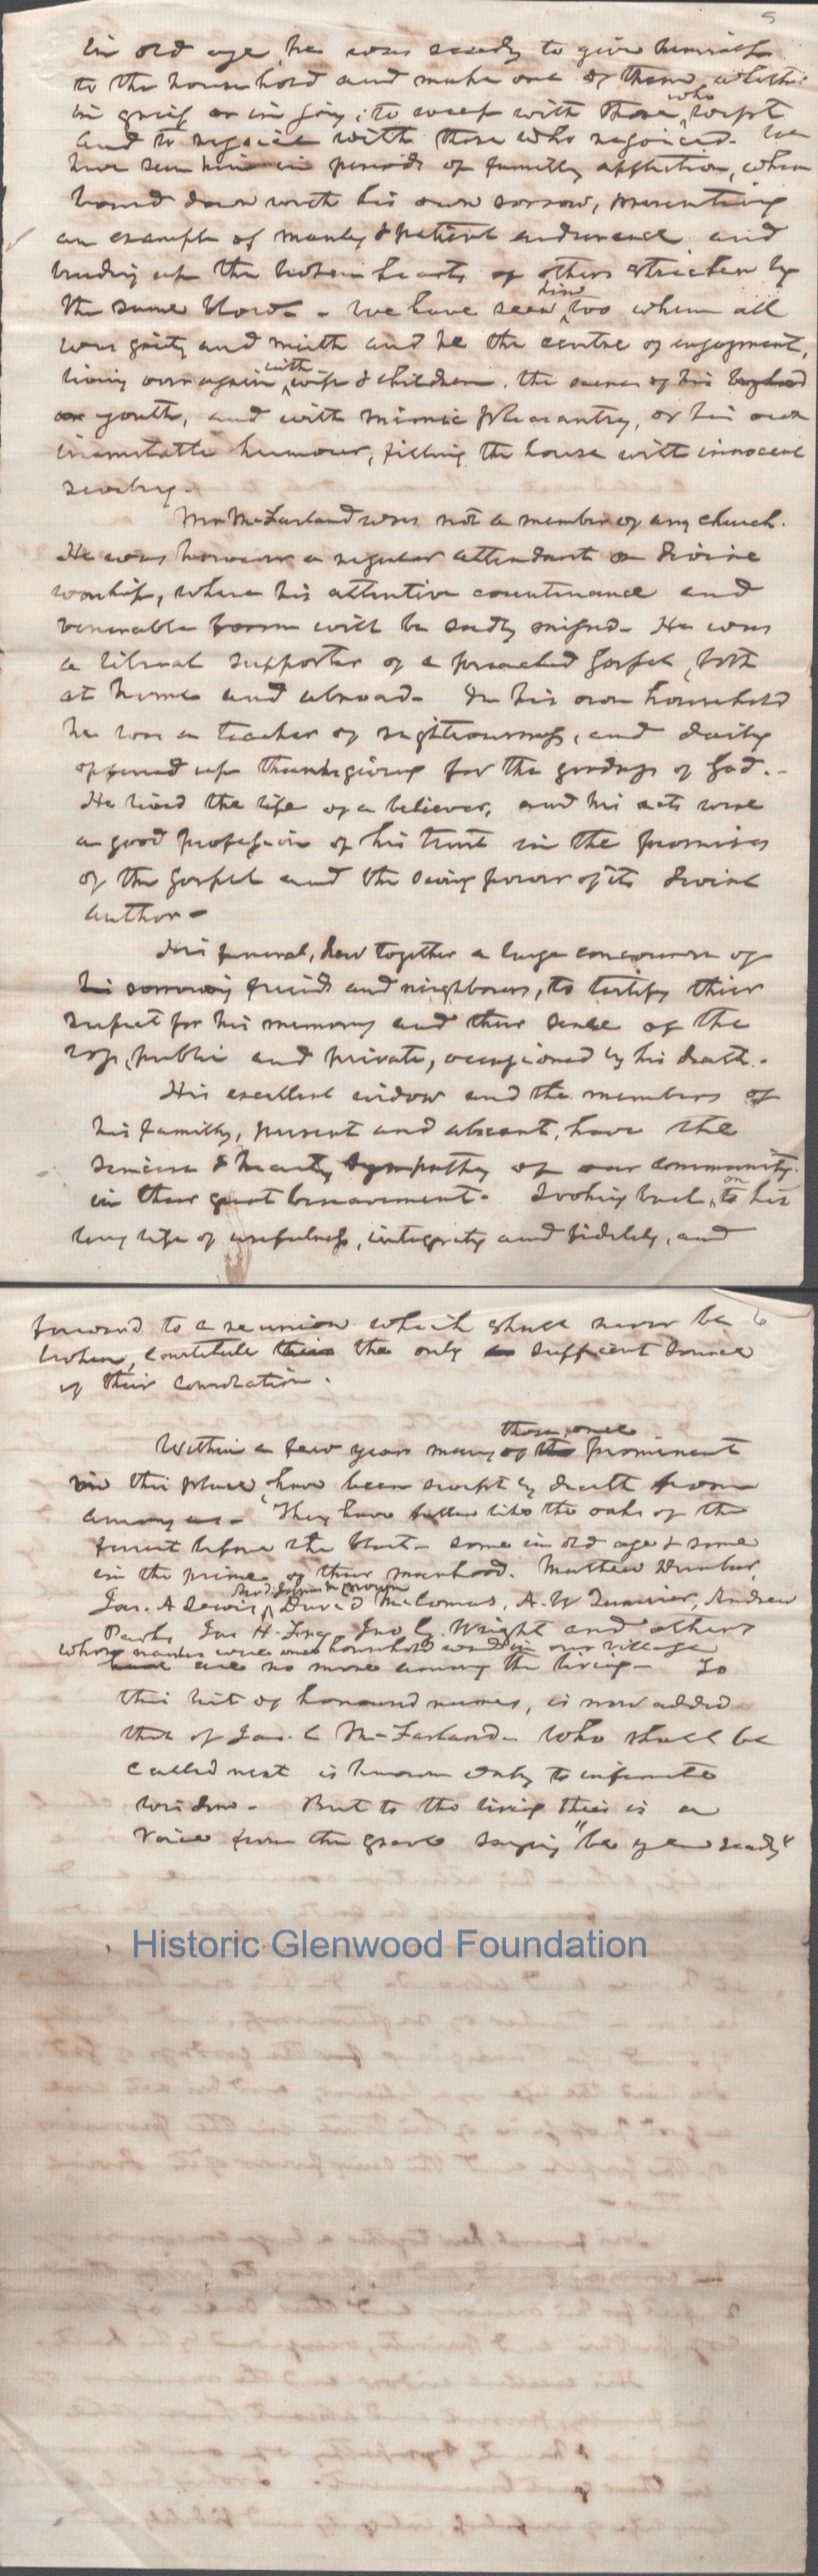 5
in old age, he was ready to give himself
to the household and make one of them, whether
in grief or in joy; to weep with those who wept
and to rejoice with those who rejoiced. We
have seen him in periods of familly affliction, when
bowed down with his own sorrow, presenting
an example of manly & patient endurance and
binding up the broken hearts of others stricken by
the same blow. - We have seen him too when all
was gaity and mirth and he the centre of enjoyment,
living over again with wife & children, the scenes of his boyhood
or youth, and with mimic pleasantry, or his own
inimitable humour, filling the house with innocent
revelry.
Mr McFarland was not a member of any church.
He was however a regular attendant on divine
worship, where his attentive countenance and
venerable form will be sadly missed. He was
a liberal supporter of a preached gospel, both
at home and abroad. In his own household
he was a teacher of righteousness, and daily
offered up thanksgiving for the goodness of God. -
He lived the life of a believer, and his acts were
a good profession of his trust in the promises
of the gospel and the saving power of its divine
author -
His funeral, drew together a large concourse of
his sorrowing friends and neighbours, to testify their
respect for his memory and their sense of the
loss, public and private, occasioned by his death. -
His excellent widow and the members of
his familly, present and absent, have the
sincere & hearty sympathy of our community
in their great bereavement. Looking back on to his
long life of usefulness, integrity and fidelity, and
6
forward to a reunion which shall never be
broken, constitute their the only sufficient source
of their consolation.
Within a few years many of the those once prominent
in this place have been swept by death from
among us. They have fallen like the oaks of the
forest before the blast - some in old age & some
in the prime of their manhood. Mathew Dunbar,
Jas. A Lewis, David McComas, A. W Quarrier, Andrew
Parks, Jas H. Fry, Jno G. Wright and others
whose names were once household words in our village
are no more among the living - To
this list of honoured names, is now added
that of Jas. C McFarland. Who shall be
called next is known only to infinite
wisdom - But to the living there is a
voice from the grave saying "be ye ready"
Historic Glenwood Foundation